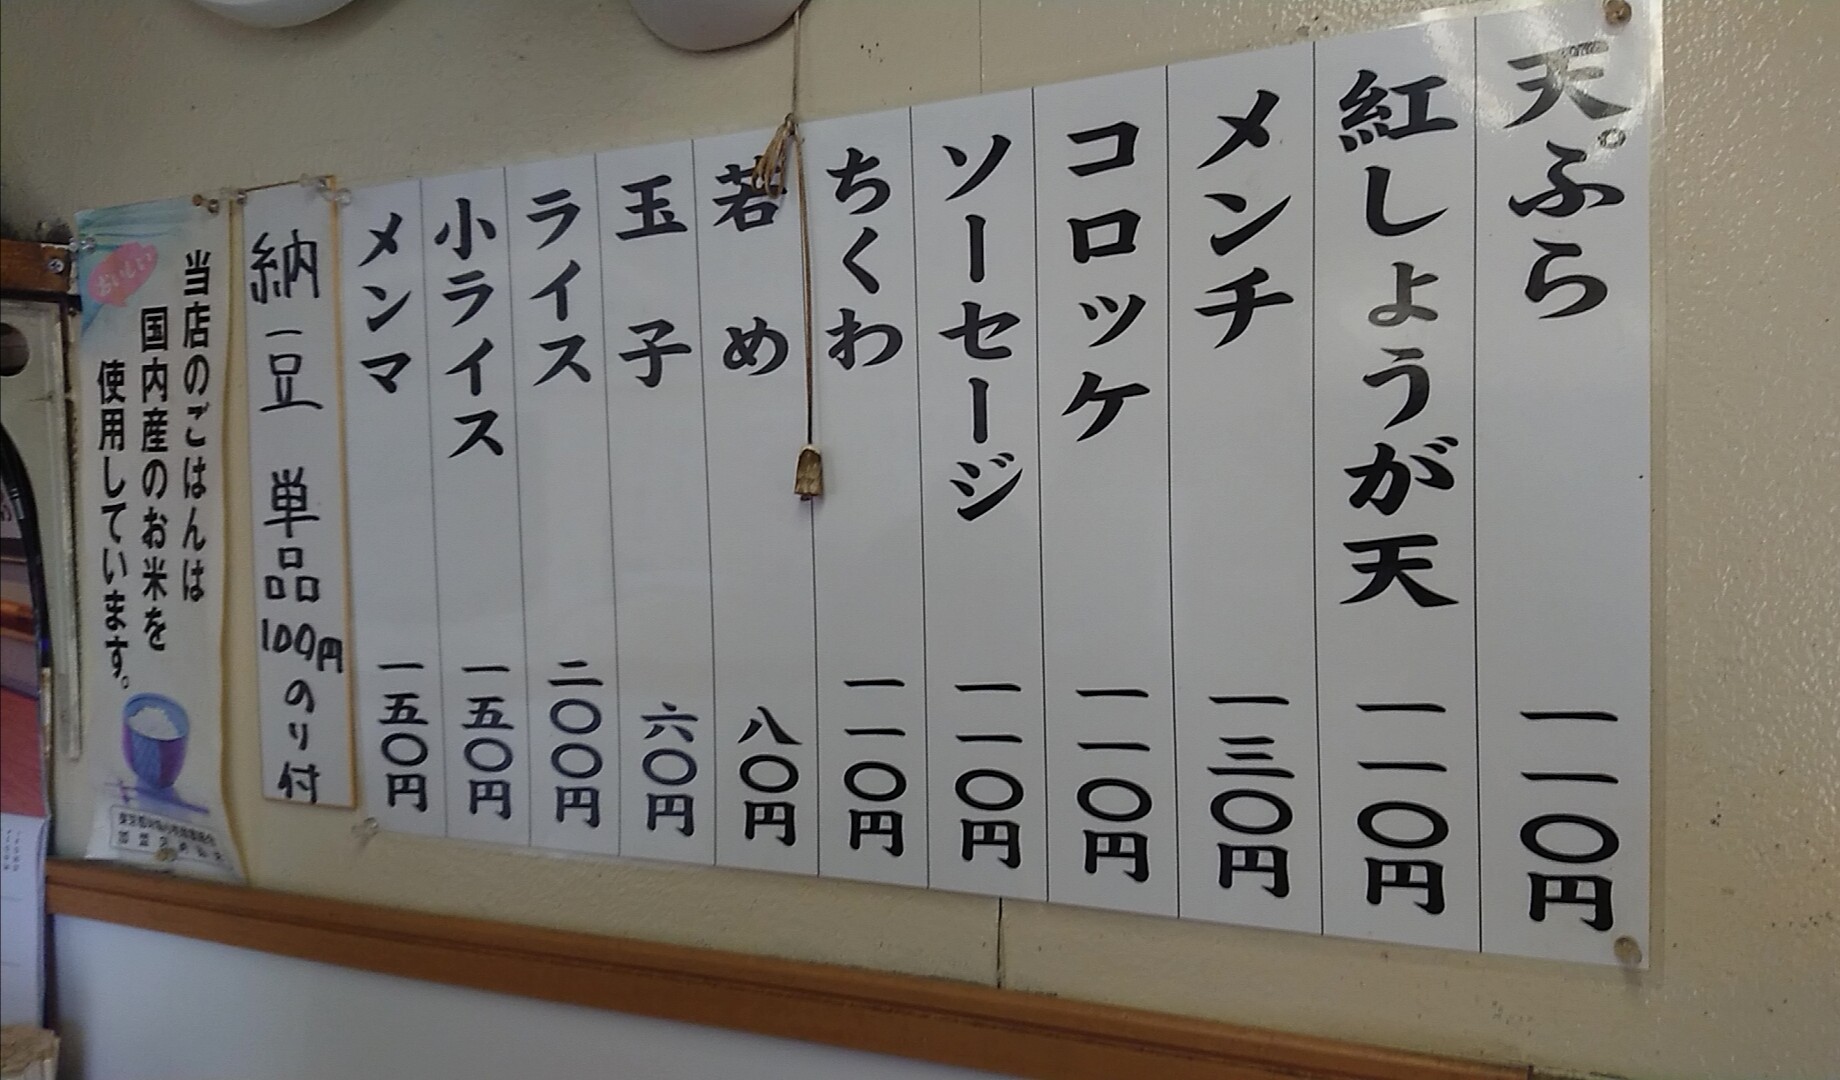 天ぷら 一一〇円
紅しょうが天 一一〇円
メンチ 一三〇円
コロッケ 一一〇円
ソーセージ 一一〇円
ちくわ 一一〇円
若め 八〇円
玉子 六〇円
ライス 二〇〇円
小ライス 一五〇円
メンマ 一五〇円
納豆 単品100円のり付
おいしい
当店のごはんは
国内産のお米を
使用しています。